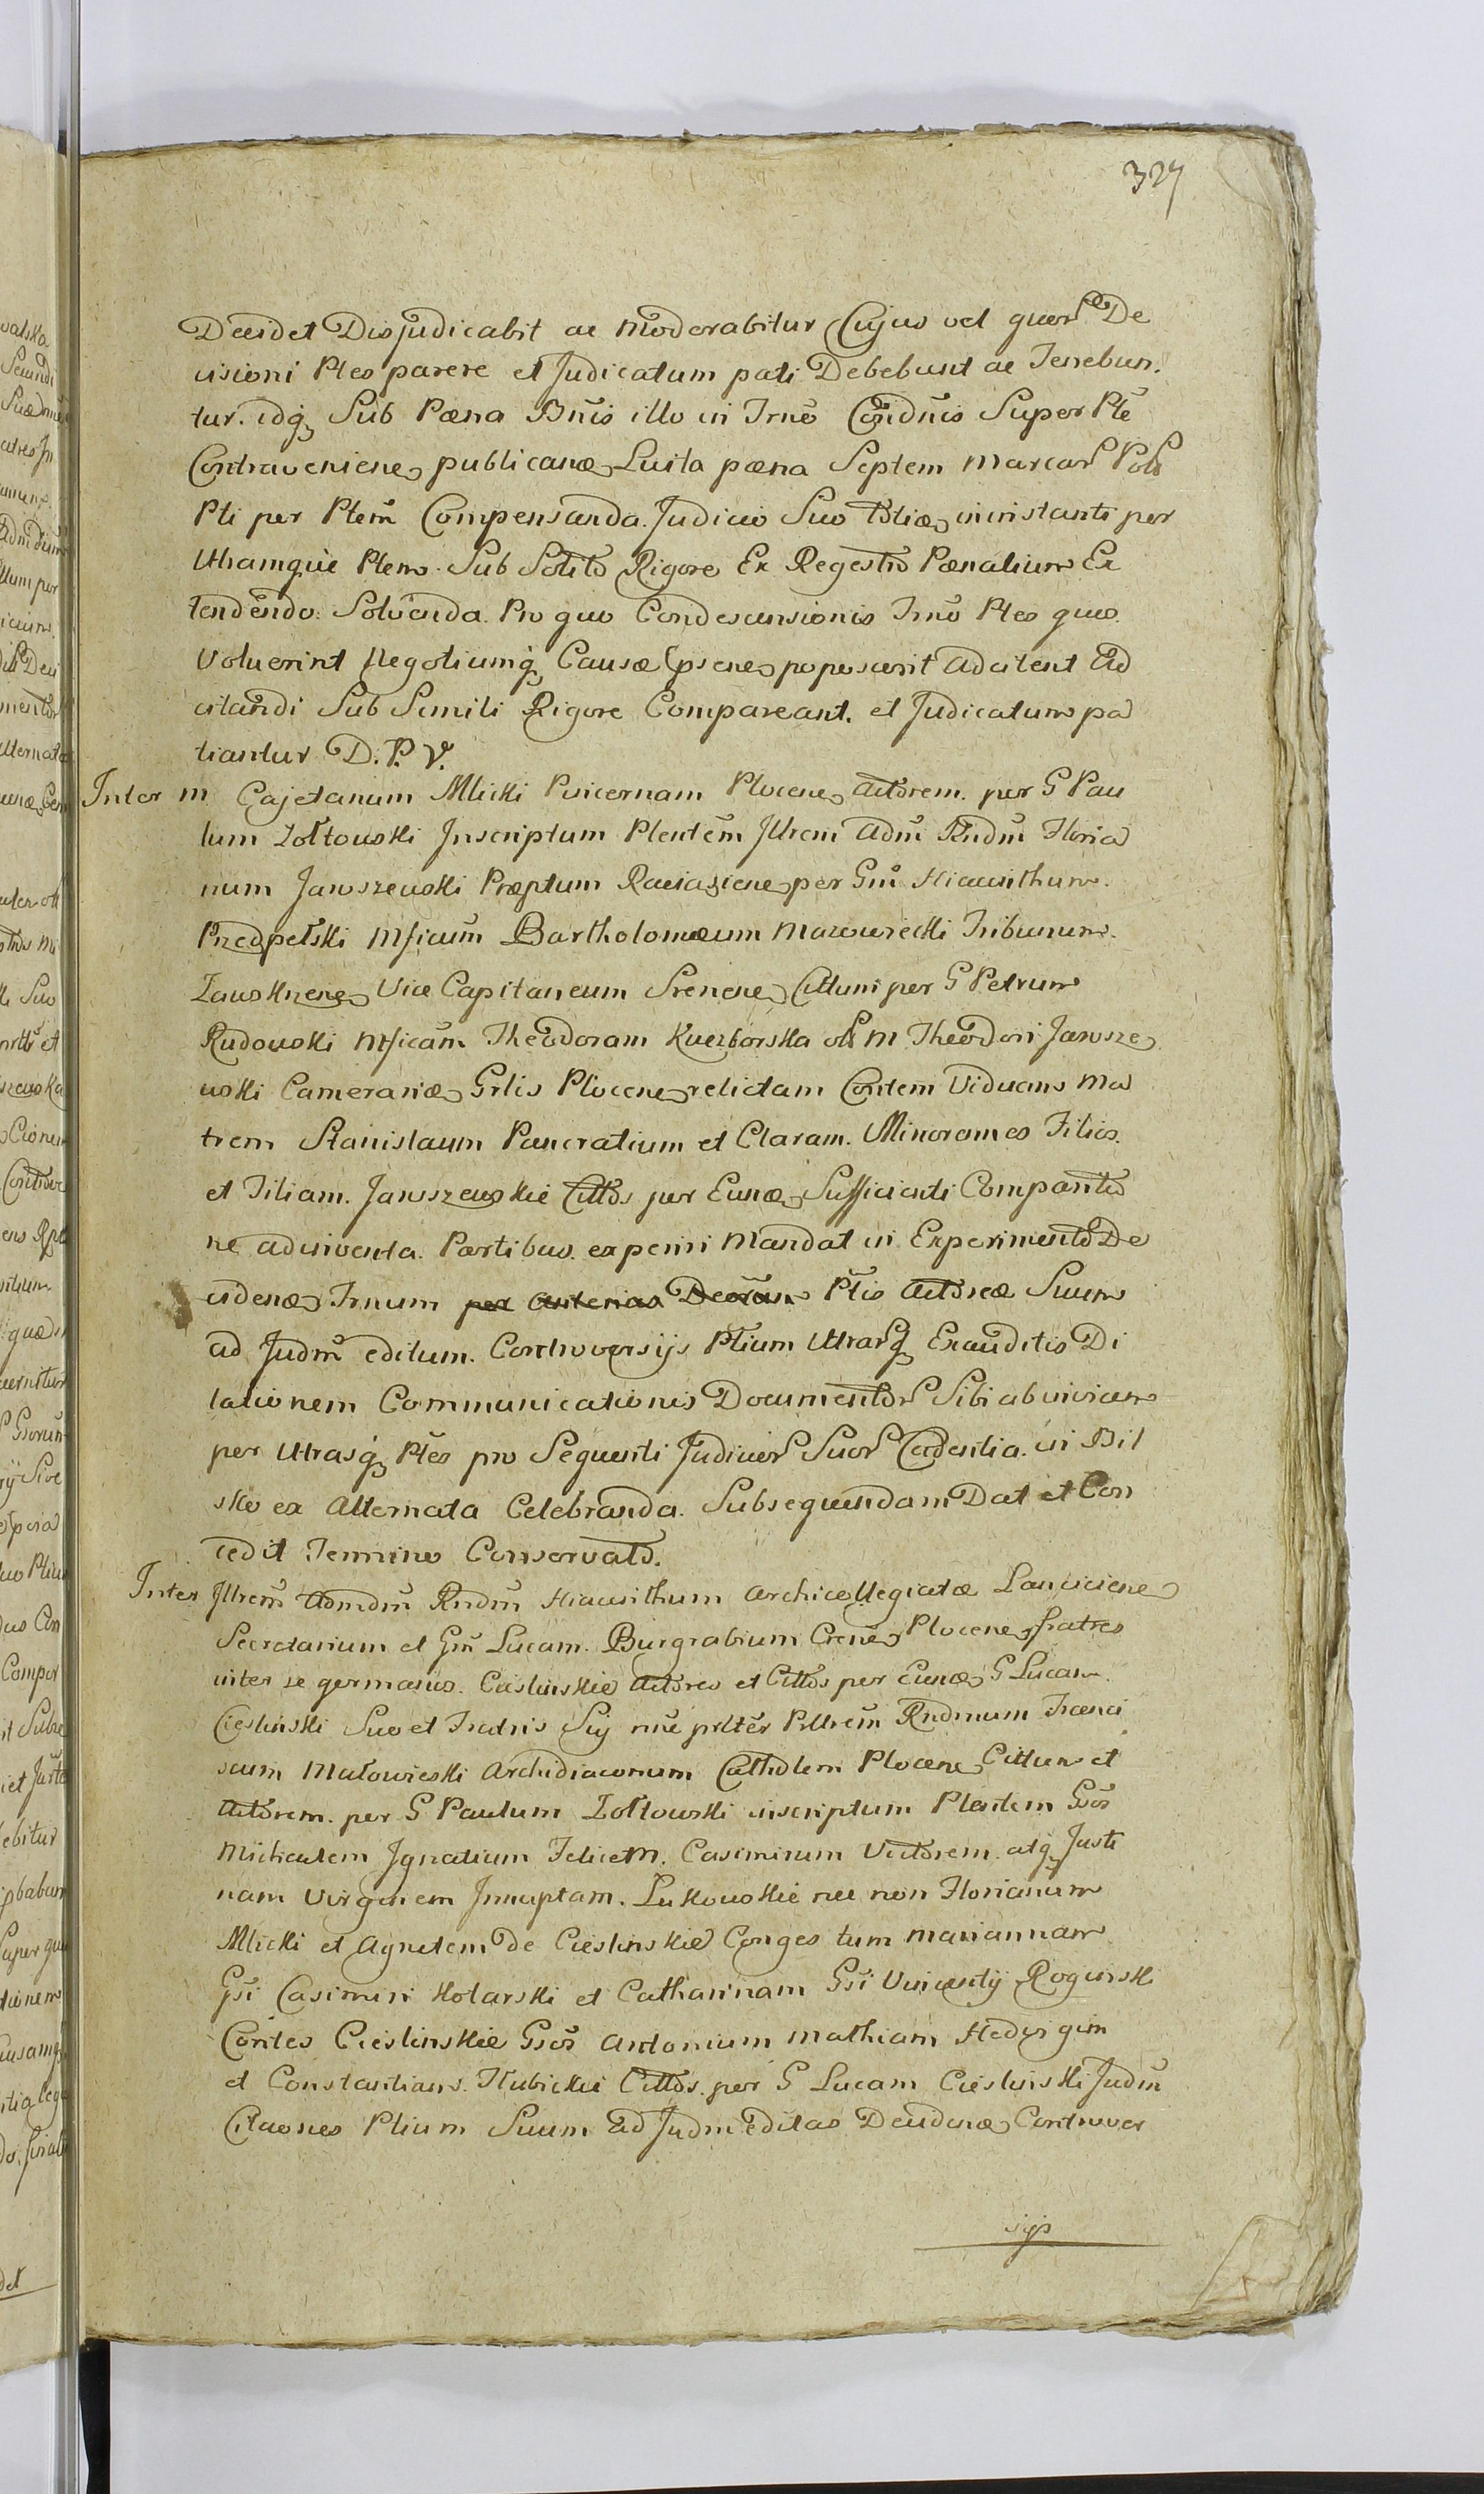 327
Decidet Disjudicabit ac Moderabitur Cujus vel quor De
cisioni Ptes parere et Judicatum pati Debebunt ac Tenebun.
tur. idq Sub Pæna Bnis illo in Trno Condnis Super Pte
Contraveniene publicanæ Luita pæna Septem Marcar Pols
Pti per Ptem Compensanda. Judicio Suo Pstiæ ininstanti per
Utramque Ptem. Sub Solito Rigore Ex Regestro Pænalium Ex
tendendo. Solvenda. Pro quo Condescensionis Trno Ptes quos
Voluerint Negotiumq Causæ Ipsiene poposcerit Adcitent Ad
citandi Sub Simili Rigore Compareant. et Judicatum pa
tiantur D. P. V.
Inter M Cajetanum Mlicki Pincernam Plocene Actorem. per G Pau
lum Zołtowski Inscriptum Plentem Illrem Adm Rndm Floria
num Janszewski Præptum Raciąziene per Gm Hiacinthum.
Przedpełski Mficum Bartholomæum Mazowiecki Tribunum.
Zawskrzene Vice Capitaneum Srenene Cittum per G Petrum
Rudowski Mficam Theodoram Kuczborska ols M Theodori Jansze
wski Camerariæ Grlis Plocene relictam Contem Viduam Ma
trem Stanislaum Pancratium et Claram. Minorennes Filios.
et Filiam. Janszewskie Cittos per Eunæ Sufficienti Comparitio
ne adinventa. Partibus. experiri Mandat in Experimento De
cidenæ Trnum per anterias Decram Ptis Actoreæ Suum
ad Judm editum. Controversijs Ptium Utrarq Exauditis Di
lationem Communicationis Documentor Sibi abinvicem
per Utrasq Ptes pro Sequenti Judicior Suor Cadentia. in Bil
sko ex Alternata Celebranda. Subsequendam Dat et Con
cedit Termino Conservato.
Inter Illrem Admdm Rndm Hiacinthum Archicollegiatæ Lanciciene
Secretarium et Gm Lucam. Burgrabium Crene Plocene fratres
inter se germanos. Cieslinskie Actores et Cittos per Eunæ G Lucam.
Cieslinski Suo et Fratris Sui nne prlter Pllrem Rndmum Franci
scum Małowieski Archidiaconum Cathdlem Plocene Cittum et
Actorem. per G Paulum Zołtowski inscriptum Plentem Gsos
Michaelem Ignatium Felicem. Casimirum Victorem. atq Justi
nam Virginem Innuptam. Łukowskie nec non Florianum
Mlicki et Agnetem de Cieslinskie Conges tum Mariannam
Gsi Casimiri Kolarski et Catharinam Gsi Vincentij Roginski
Contes Cieslinskie Gsos Antonium Mathiam Hedvigim
et Constantiam. Kubickie Cittos. per G Lucam Cieslinski Judm
Citaones Ptium Suum ad Judm editas Decidenæ Controver
sijs